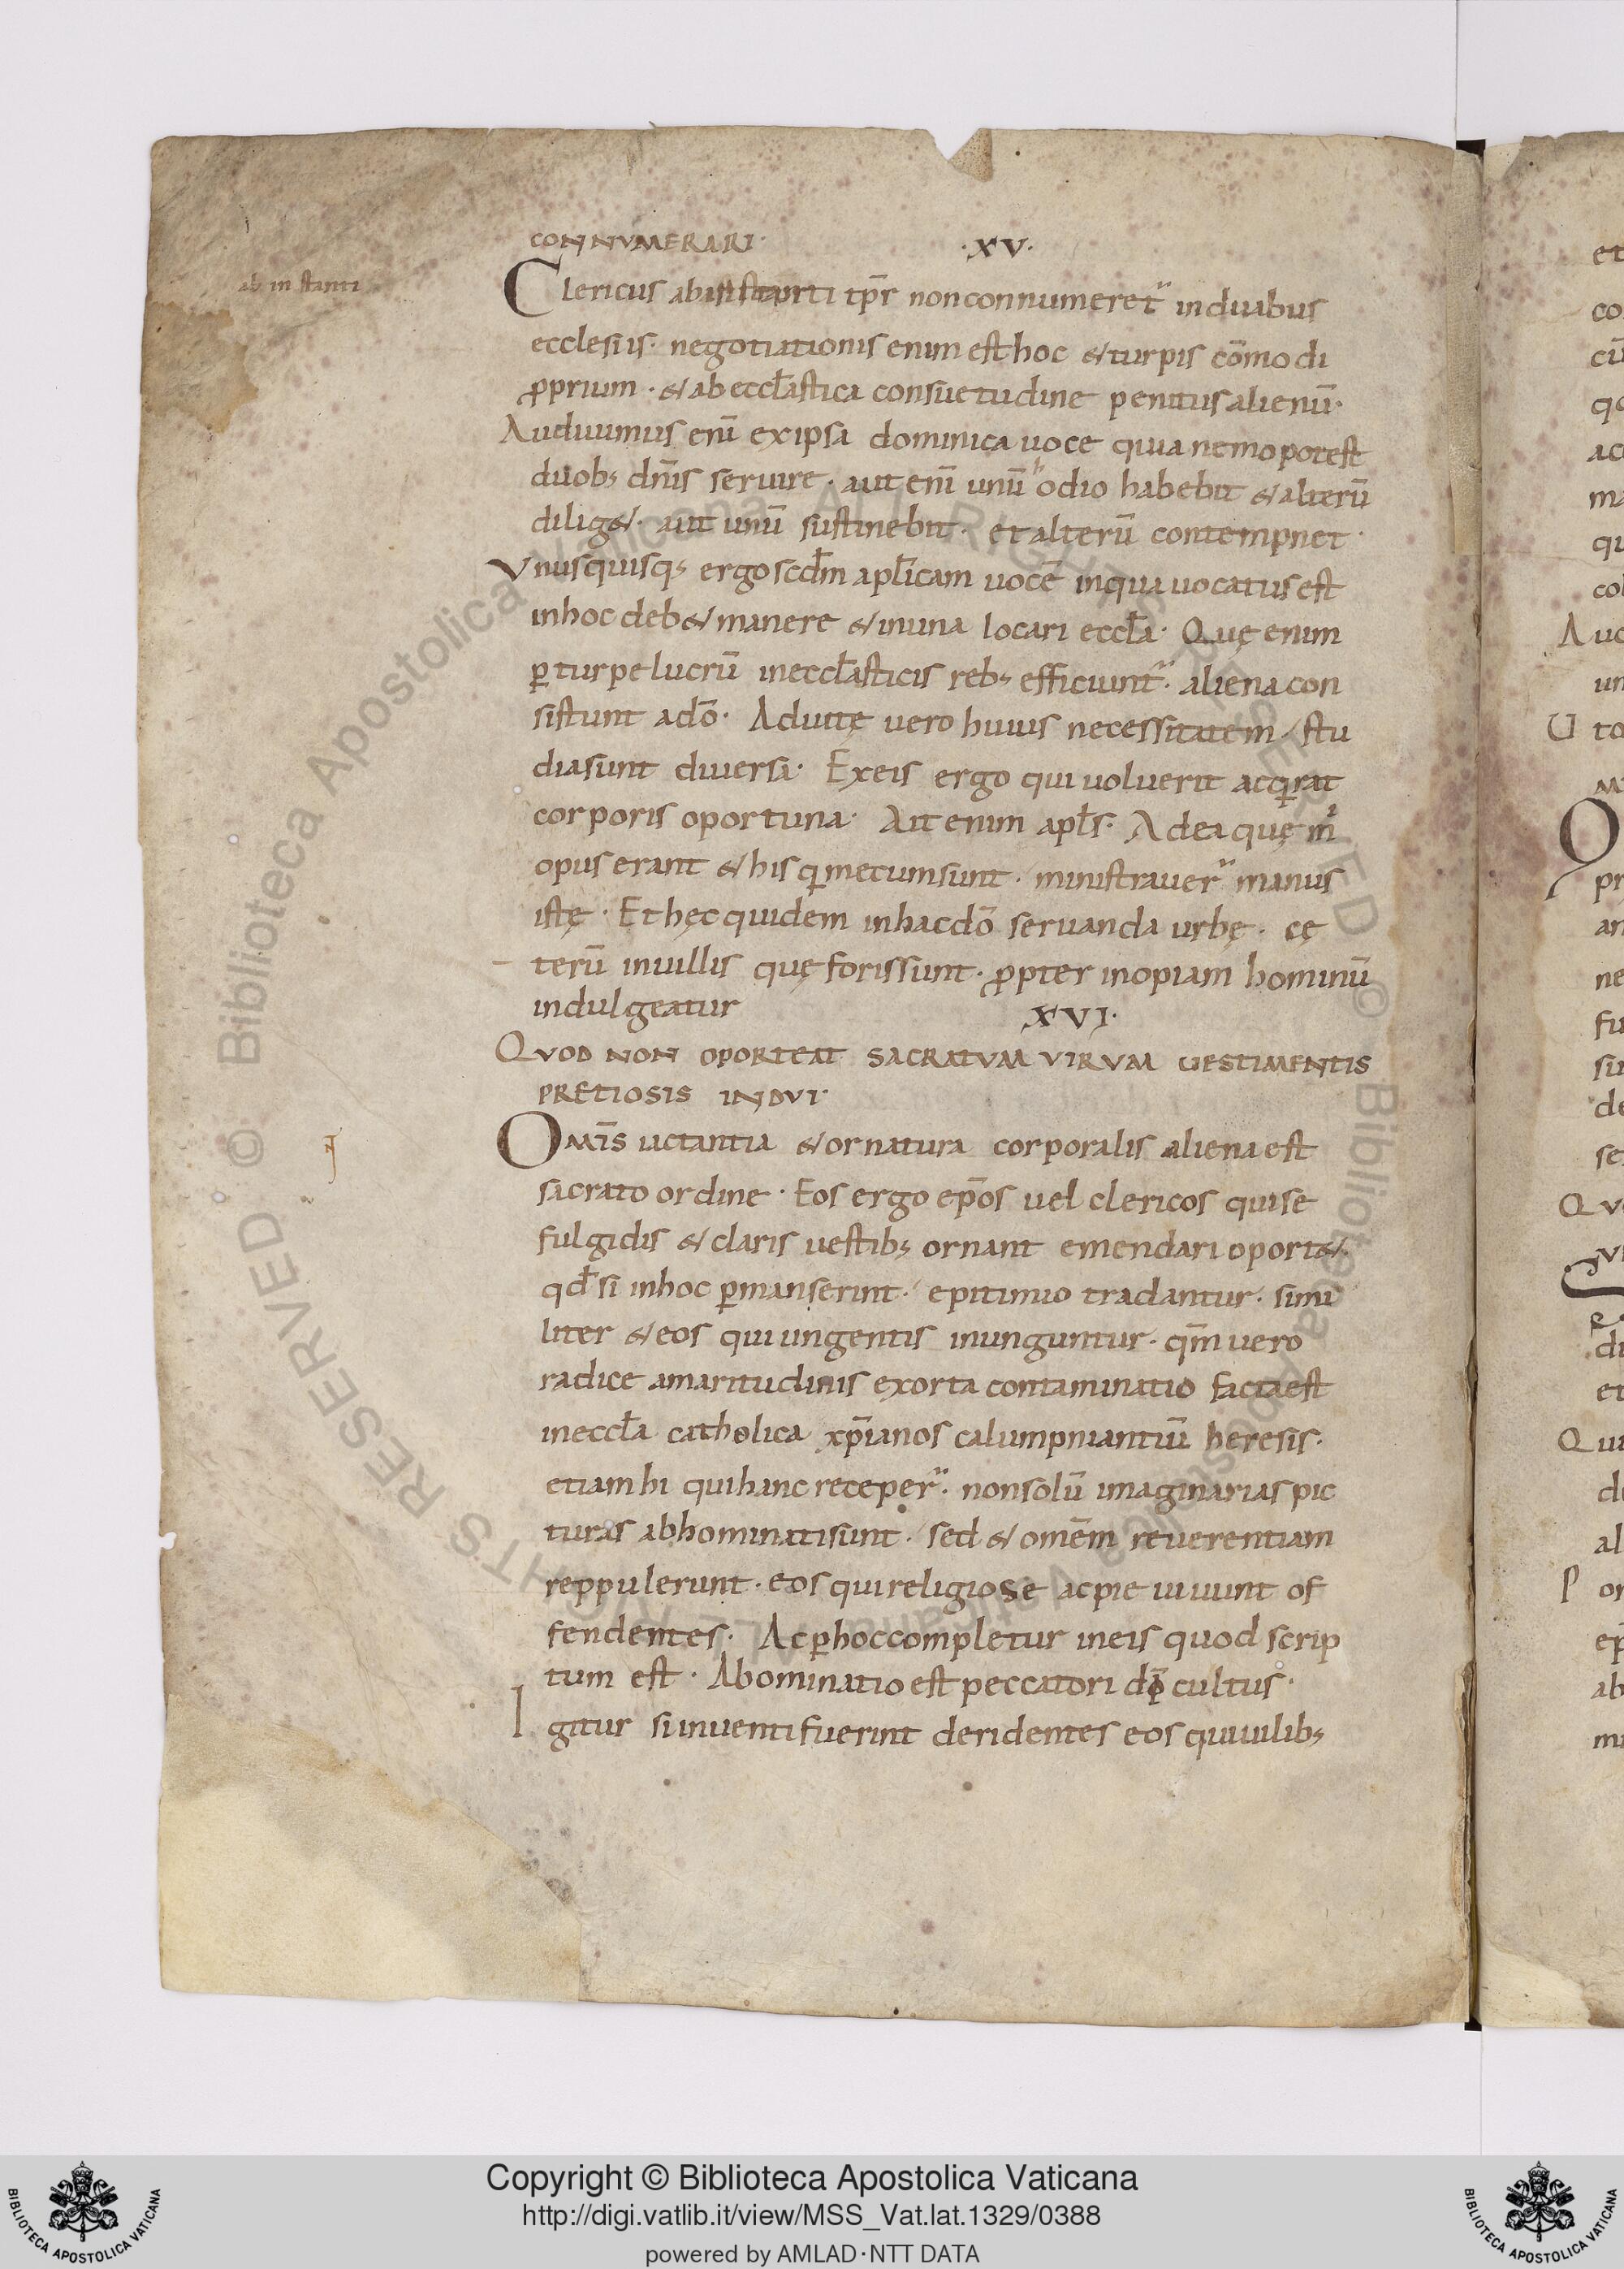 CONNUMERARI· ·XV·
ab in stanti
Clericus ab instanti tp̄r non connumeret̃ in duabus
ecclesiis· negotiationis enim est hoc & turpis cōmodi
ꝓprium · & ab eccl̄astica consuetudine penitus alienū·
Audiuimus enī ex ipsa dominica uoce quia nemo potest
duob; dn̄is seruire · aut enī unū odio habebit & alterū
dilig&· aut unū sustinebit · et alterū contempnet·
Vnusquisq; ergo scd̄m apl̄icam uocē in qua uocatus est
in hoc deb& manere & in una locari eccl̄a· Quę enim
ꝑ turpe lucrū in eccl̄asticis reb; efficiunt̃· aliena con
sistunt a dō· Ad uitę uero huius necessitatem· stu
dia sunt diuersa· Ex eis ergo qui uoluerit acq̇rat
corporis oportuna· Ait enim apl̄s· Ad ea quę m̄
opus erant & his q̇ mecum sunt · ministrauer̃ manus
istę · Et hęc quidem in hac dō seruanda urbe · cę
terū in uillis quę foris sunt · ꝓpter inopiam hominū
indulgeatur XVI·
QUOD NON OPORTEAT SACRATUM VIRUM UESTIMENTIS
PRETIOSIS INDUI·
OMĪS iactantia & ornatura corporalis aliena est
sacrato ordine · Eos ergo ep̄os uel clericos qui se
fulgidis & claris uestib; ornant emendari oport&·
qđ si in hoc ꝑmanserint· epitimio tradantur· simi
liter & eos qui ungentis inunguntur· qm̄ uero
radice amaritudinis exorta contaminatio facta est
in eccl̄a catholica xp̄ianos calumpniantiū heresis·
etiam hi qui hanc receper̃· non solū imaginarias pic
turas abhominati sunt · sed & omēm reuerentiam
reppulerunt · eos qui religiose ac pie uiuunt of
fendentes· Ac ꝑ hoc completur in eis quod scrip
tum est · Abominatio est peccatori dī cultus·
Igitur si inuenti fuerint deridentes eos qui uilib;
Copyright © Biblioteca Apostolica Vaticana
http://digi.vatlib.it/view/MSS_Vat.lat.1329/0388
powered by AMLAD·NTT DATA
BIBLIOTECA APOSTOLICA VATICANA
BIBLIOTECA APOSTOLICA VATICANA